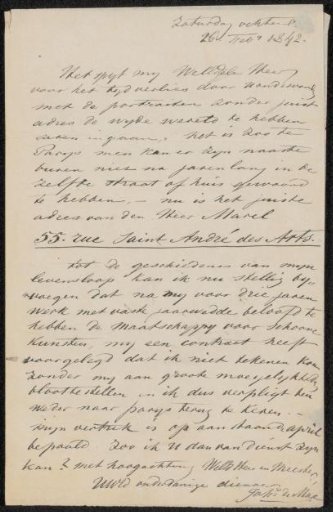 Zaturdag
26 Feb. 1842.
Het spyt my WelEdele Heer
voor het tydverlies door
met de portraiten zonder juist
adres de wyde wereld te hebben
in gaan, het is zoo te
Parys men kan er zyn naaste
buren niet na jaren lang in de
zelfde straat of huis gewoond
te hebben, — nu is het juiste
adres van den Heer Marel
55. rue Saint André des Arts.
tot de geschiedenis van myn
levensloop kan ik nu stellig by,
voegen dat na my voor drie jaren
werk met vaste jaarwedde beloofd te
hebben de maatschappy voor Schoone
kunsten, my een contract heeft
voorgelegd dat ik niet tekenen kon
zonder my aan groote moeyelykheden
bloot te stellen en ik dus verpligt ben
weder naar parys terug te keren. —
myn vertrek is op aanstaande april
bepaald zoo ik U dan van dienst zyn
kan? met hoogachting,
UWEd onderdanige dienaar